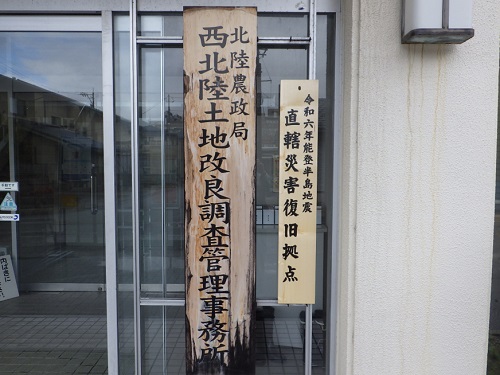 北陸農政局
西北陸土地改良調査管理事務所
令和六年能登半島地震
直轄災害復旧拠点